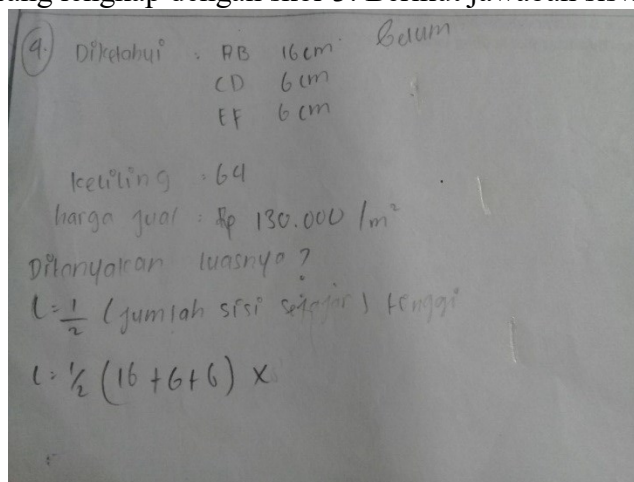 ang lengkap dengan skor 3. Berikut jawaban
4. Diketahui : AB 16 cm Belum
CD 6 cm
EF 6 cm
keliling = 64
harga jual : Rp 130.000 /m²
Ditanyakan luasnya ?
L = 1/2 (jumlah sisi sejajar) tinggi
L = 1/2 (16 + 6 + 6) ×